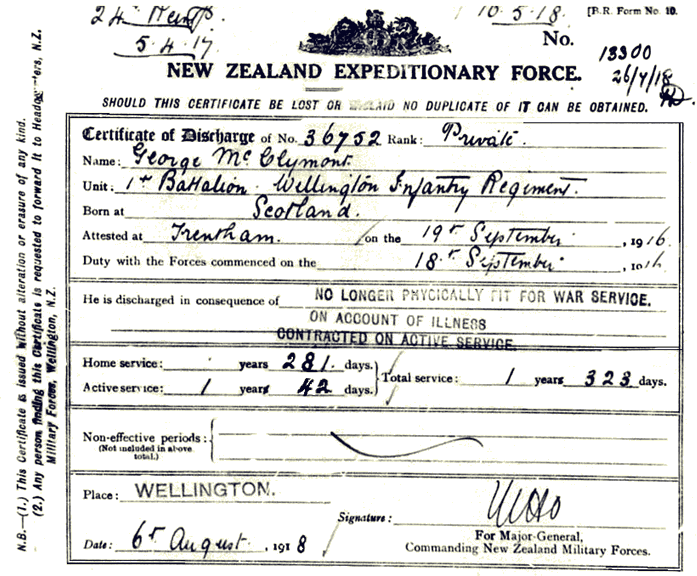 24 Reinfs
5.4.17
10.5.18.
[B.R. Form No. 10.
No.
13300
26/7/18
NEW ZEALAND EXPEDITIONARY FORCE.
SHOULD THIS CERTIFICATE BE LOST OR MISLAID NO DUPLICATE OF IT CAN BE OBTAINED.
Certificate of Discharge of No. 36752 Rank: Private.
Name: George McClymont
Unit: 1st Battalion Wellington Infantry Regiment.
Born at Scotland.
Attested at Trentham. on the 19th September, 1916.
Duty with the Forces commenced on the 18th September, 1916
He is discharged in consequence of NO LONGER PHYSICALLY FIT FOR WAR SERVICE.
ON ACCOUNT OF ILLNESS
CONTRACTED ON ACTIVE SERVICE.
Home service: years 281 days.
Active service: 1 years 42 days.
Total service: 1 years 323 days.
Non-effective periods:
(Not included in above
total.)
Place: WELLINGTON.
Signature:
Date: 6th August, 1918
For Major-General,
Commanding New Zealand Military Forces.
N.B.—(1.) This Certificate is issued without alteration or erasure of any kind.
(2.) Any person finding this Certificate is requested to forward it to Headquarters, N.Z.
Military Forces, Wellington, N.Z.